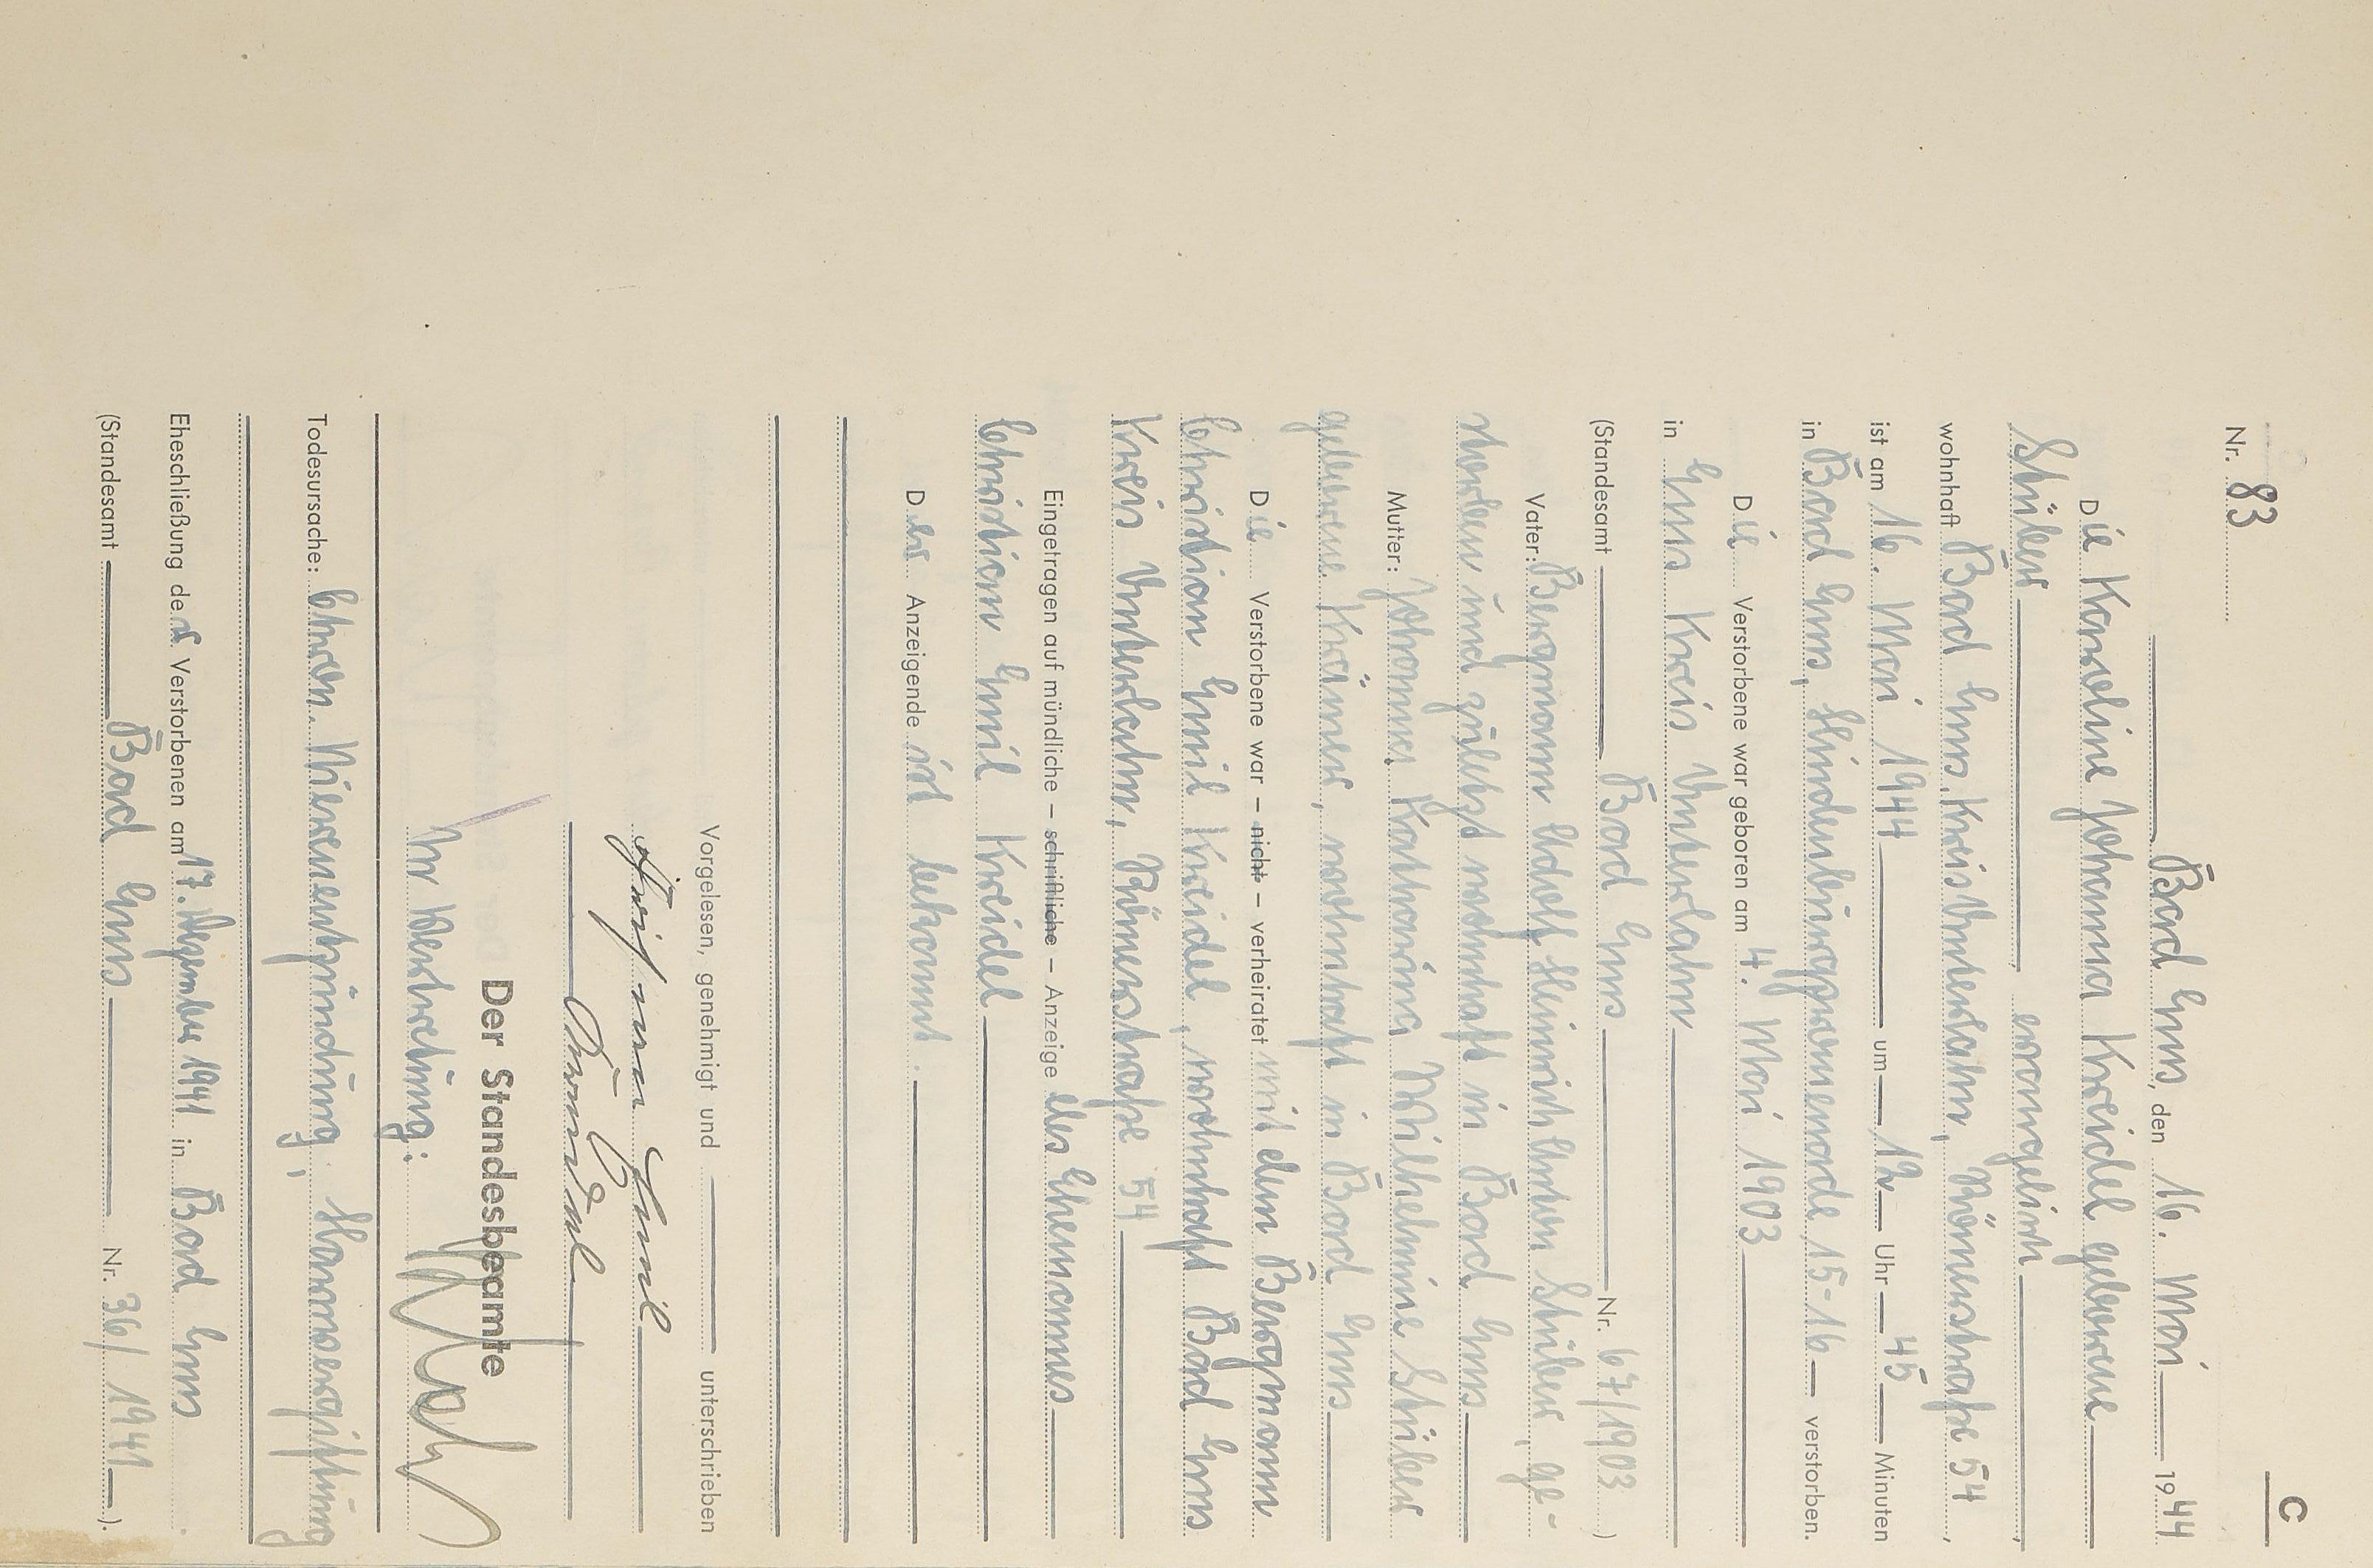 C
Nr. 83
Bad Ems, den 16. Mai 1944
Die Karoline Johanna Kreidel geborene
Stüber, evangelisch,
wohnhaft Bad Ems, Kreis Unterlahn, Römerstraße 54,
ist am 16. Mai 1944 um 12 Uhr 45 Minuten
in Bad Ems, Hindenburgpromenade 15-16 verstorben.
Die Verstorbene war geboren am 4. Mai 1903
in Ems Kreis Unterlahn
(Standesamt Bad Ems Nr. 67/1903)
Vater: Bergmann Adolf Heinrich Anton Stüber, ge-
storben und zuletzt wohnhaft in Bad Ems
Mutter: Johanna Katharina Wilhelmine Stüber
geborene Krämer, wohnhaft in Bad Ems
Die Verstorbene war – nicht – verheiratet mit dem Bergmann
Christian Emil Kreidel, wohnhaft Bad Ems
Kreis Unterlahn, Römerstraße 54
Eingetragen auf mündliche – schriftliche – Anzeige des Ehemannes
Christian Emil Kreidel
Der Anzeigende ist bekannt.
Vorgelesen, genehmigt und unterschrieben
Emil
Kreidel
Der Standesbeamte
In Vertretung:
Todesursache: Chron. Nierenentzündung, Harnvergiftung
Eheschließung der Verstorbenen am 17. Dezember 1941 in Bad Ems
(Standesamt Bad Ems Nr. 36/1941).